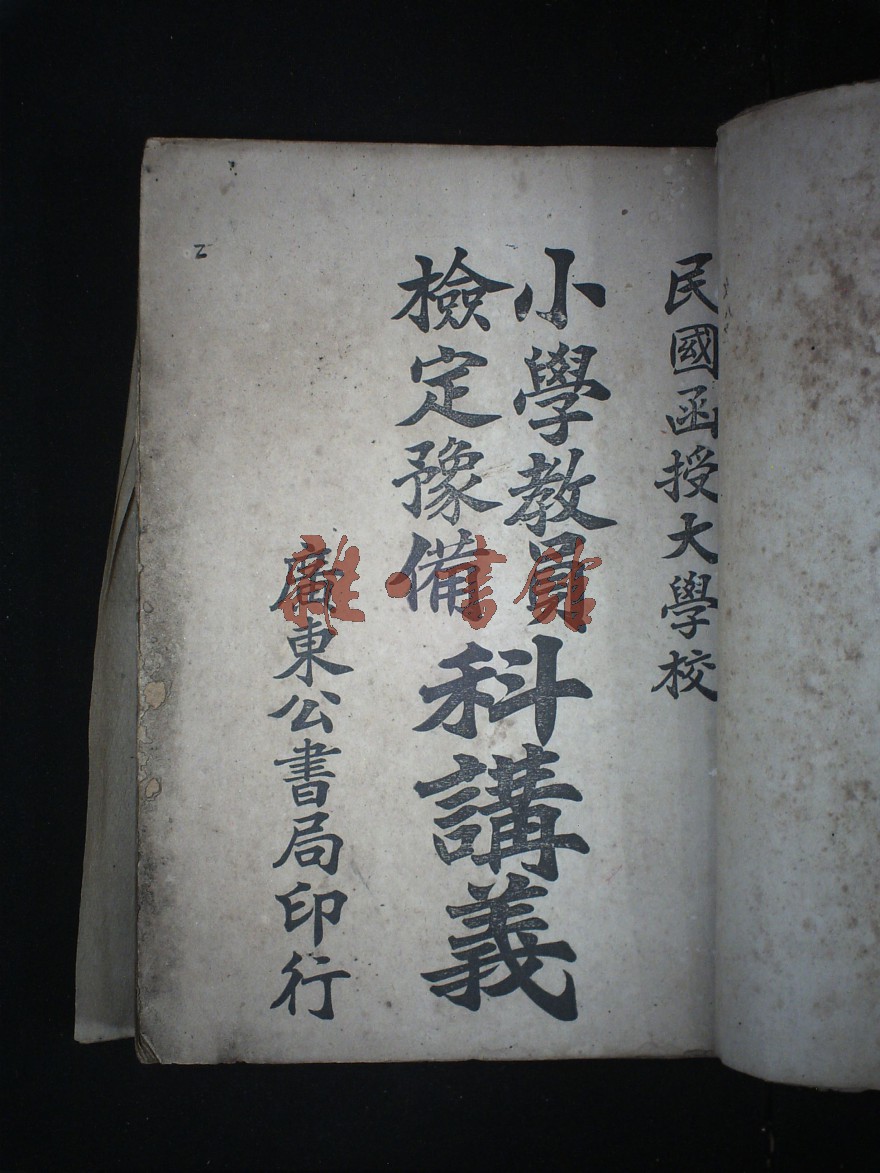 民國函授大學校
小學教員
檢定豫備
科講義
廣東公書局印行
雜·書館